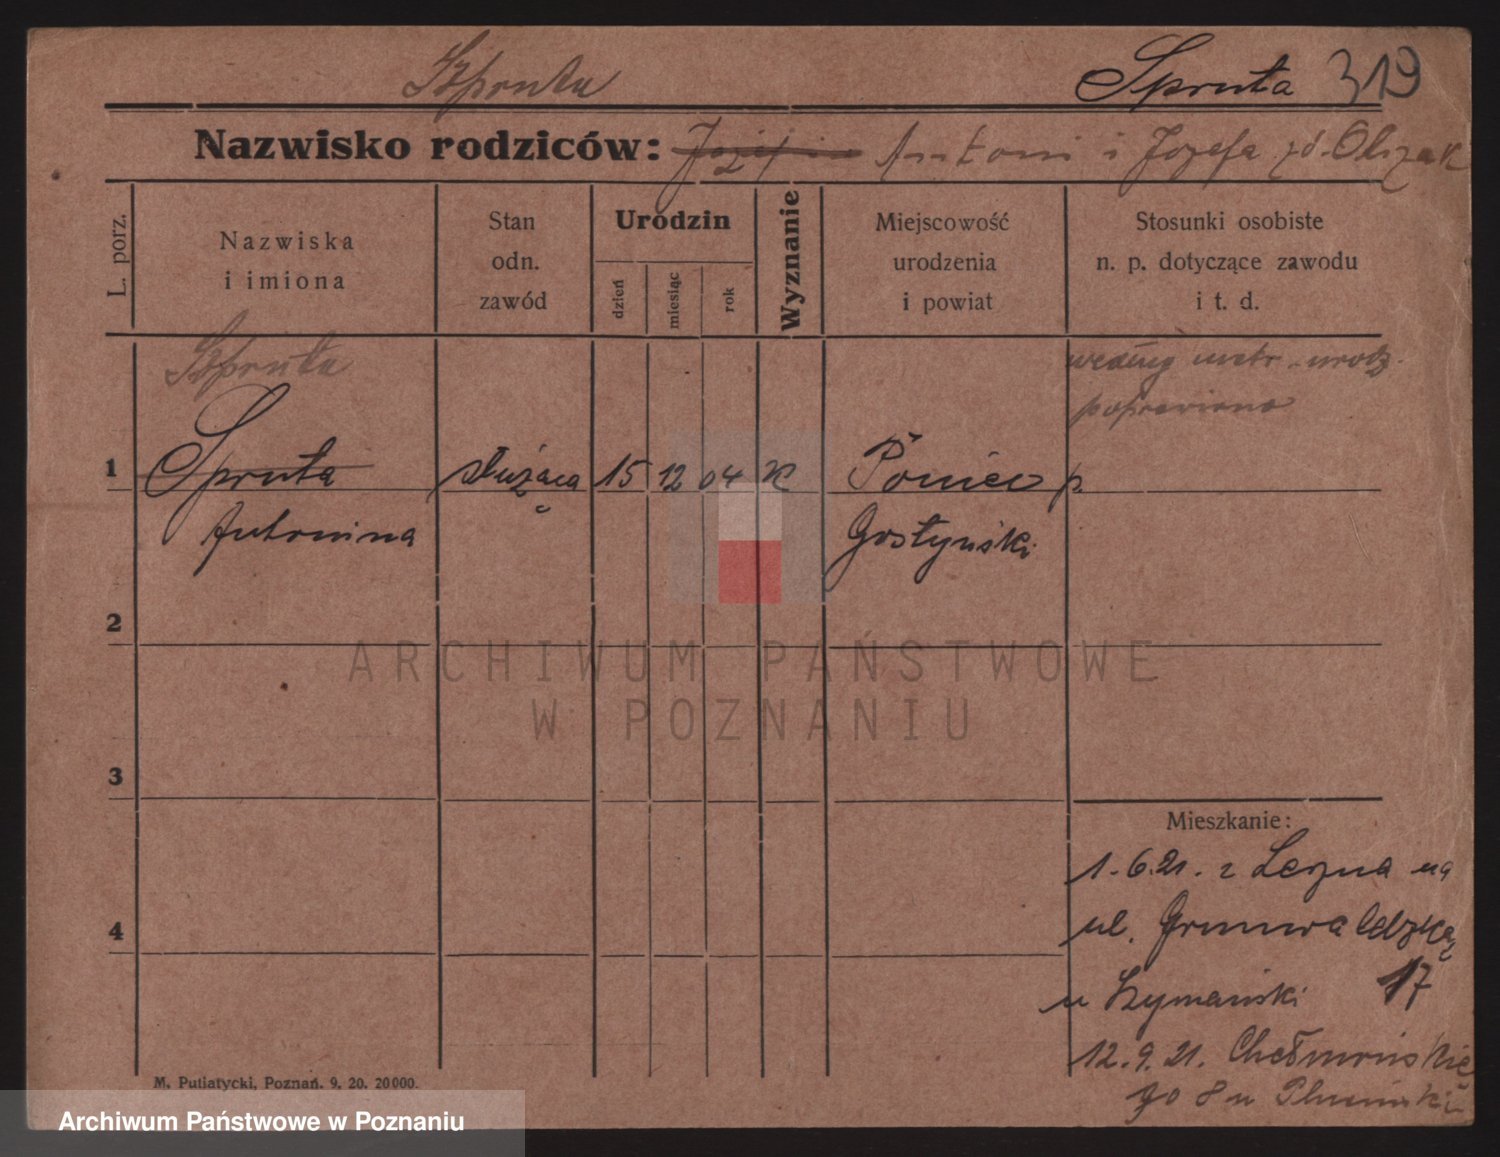 Szpruta
Spruta 319
Nazwisko rodziców: Józef i Antoni i Józefa zd. Olszak
L. porz.
Nazwiska
i imiona
Stan
odn.
zawód
Urodzin
dzień
miesiąc
rok
Wyznanie
Miejscowość
urodzenia
i powiat
Stosunki osobiste
n. p. dotyczące zawodu
i t. d.
Szpruta
według metr. urodz.
poprawiono
1 Spruta służąca 15 12 04 K Poniec p.
Antonina Gostyński
2
ARCHIWUM PAŃSTWOWE
W POZNANIU
3
Mieszkanie:
1.6.21. z Leszna na
4 ul. Grunwaldzką
u Szymański 17
12.9.21. Chełmońskie
go 8 u
M. Putiatycki, Poznań. 9. 20. 20000.
Archiwum Państwowe w Poznaniu